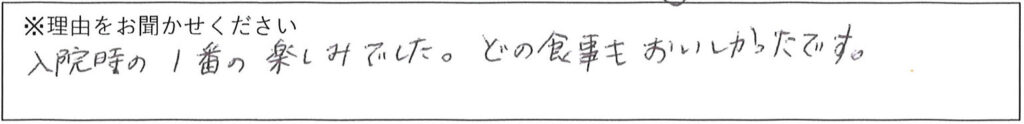 ※理由をお聞かせください
入院時の1番の楽しみでした。どの食事もおいしかったです。